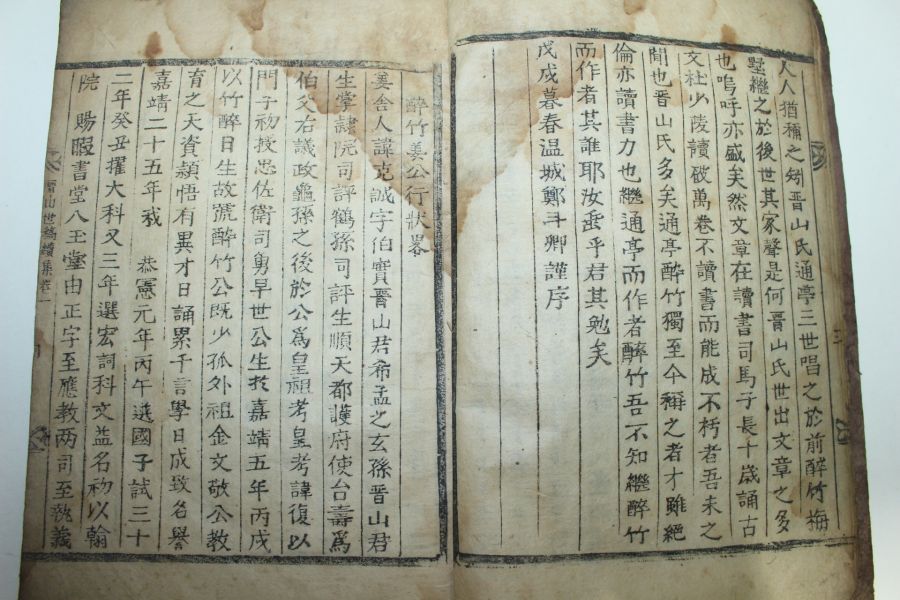 人人猶稱之矧晋山氏通亭三世唱之於前醉竹梅
墅繼之於後世其家聲是何晋山氏世出文章之多
也嗚呼亦盛矣然文章在讀書司馬子長十歲誦古
文杜少陵讀破萬卷不讀書而能成不朽者吾未之
聞也晋山氏多矣通亭醉竹獨至今稱之者才雖絕
倫亦讀書力也繼通亭而作者醉竹吾不知繼醉竹
而作者其誰耶汝乎君其勉矣
戊戌暮春温城鄭斗卿謹序
醉竹姜公行狀畧
姜舍人諱克誠字伯實晋山君希孟之玄孫晋山君
生掌隷院司評鶴孫司評生順天都護府使台壽爲
伯父右議政龜孫之後於公爲皇祖考皇考諱復以
門子初授忠佐衛司勇早世公生於嘉靖五年丙戌
以竹醉日生故號醉竹公既少孤外祖金文敬公教
育之天資穎悟有異才日誦累千言學日成致名譽
嘉靖二十五年我 恭憲元年丙午選國子試三十
二年癸丑擢大科又三年選宏詞科文益名初以翰
院 賜暇書堂八玉堂由正字至應教两司至執義
晋山世稿續集卷一